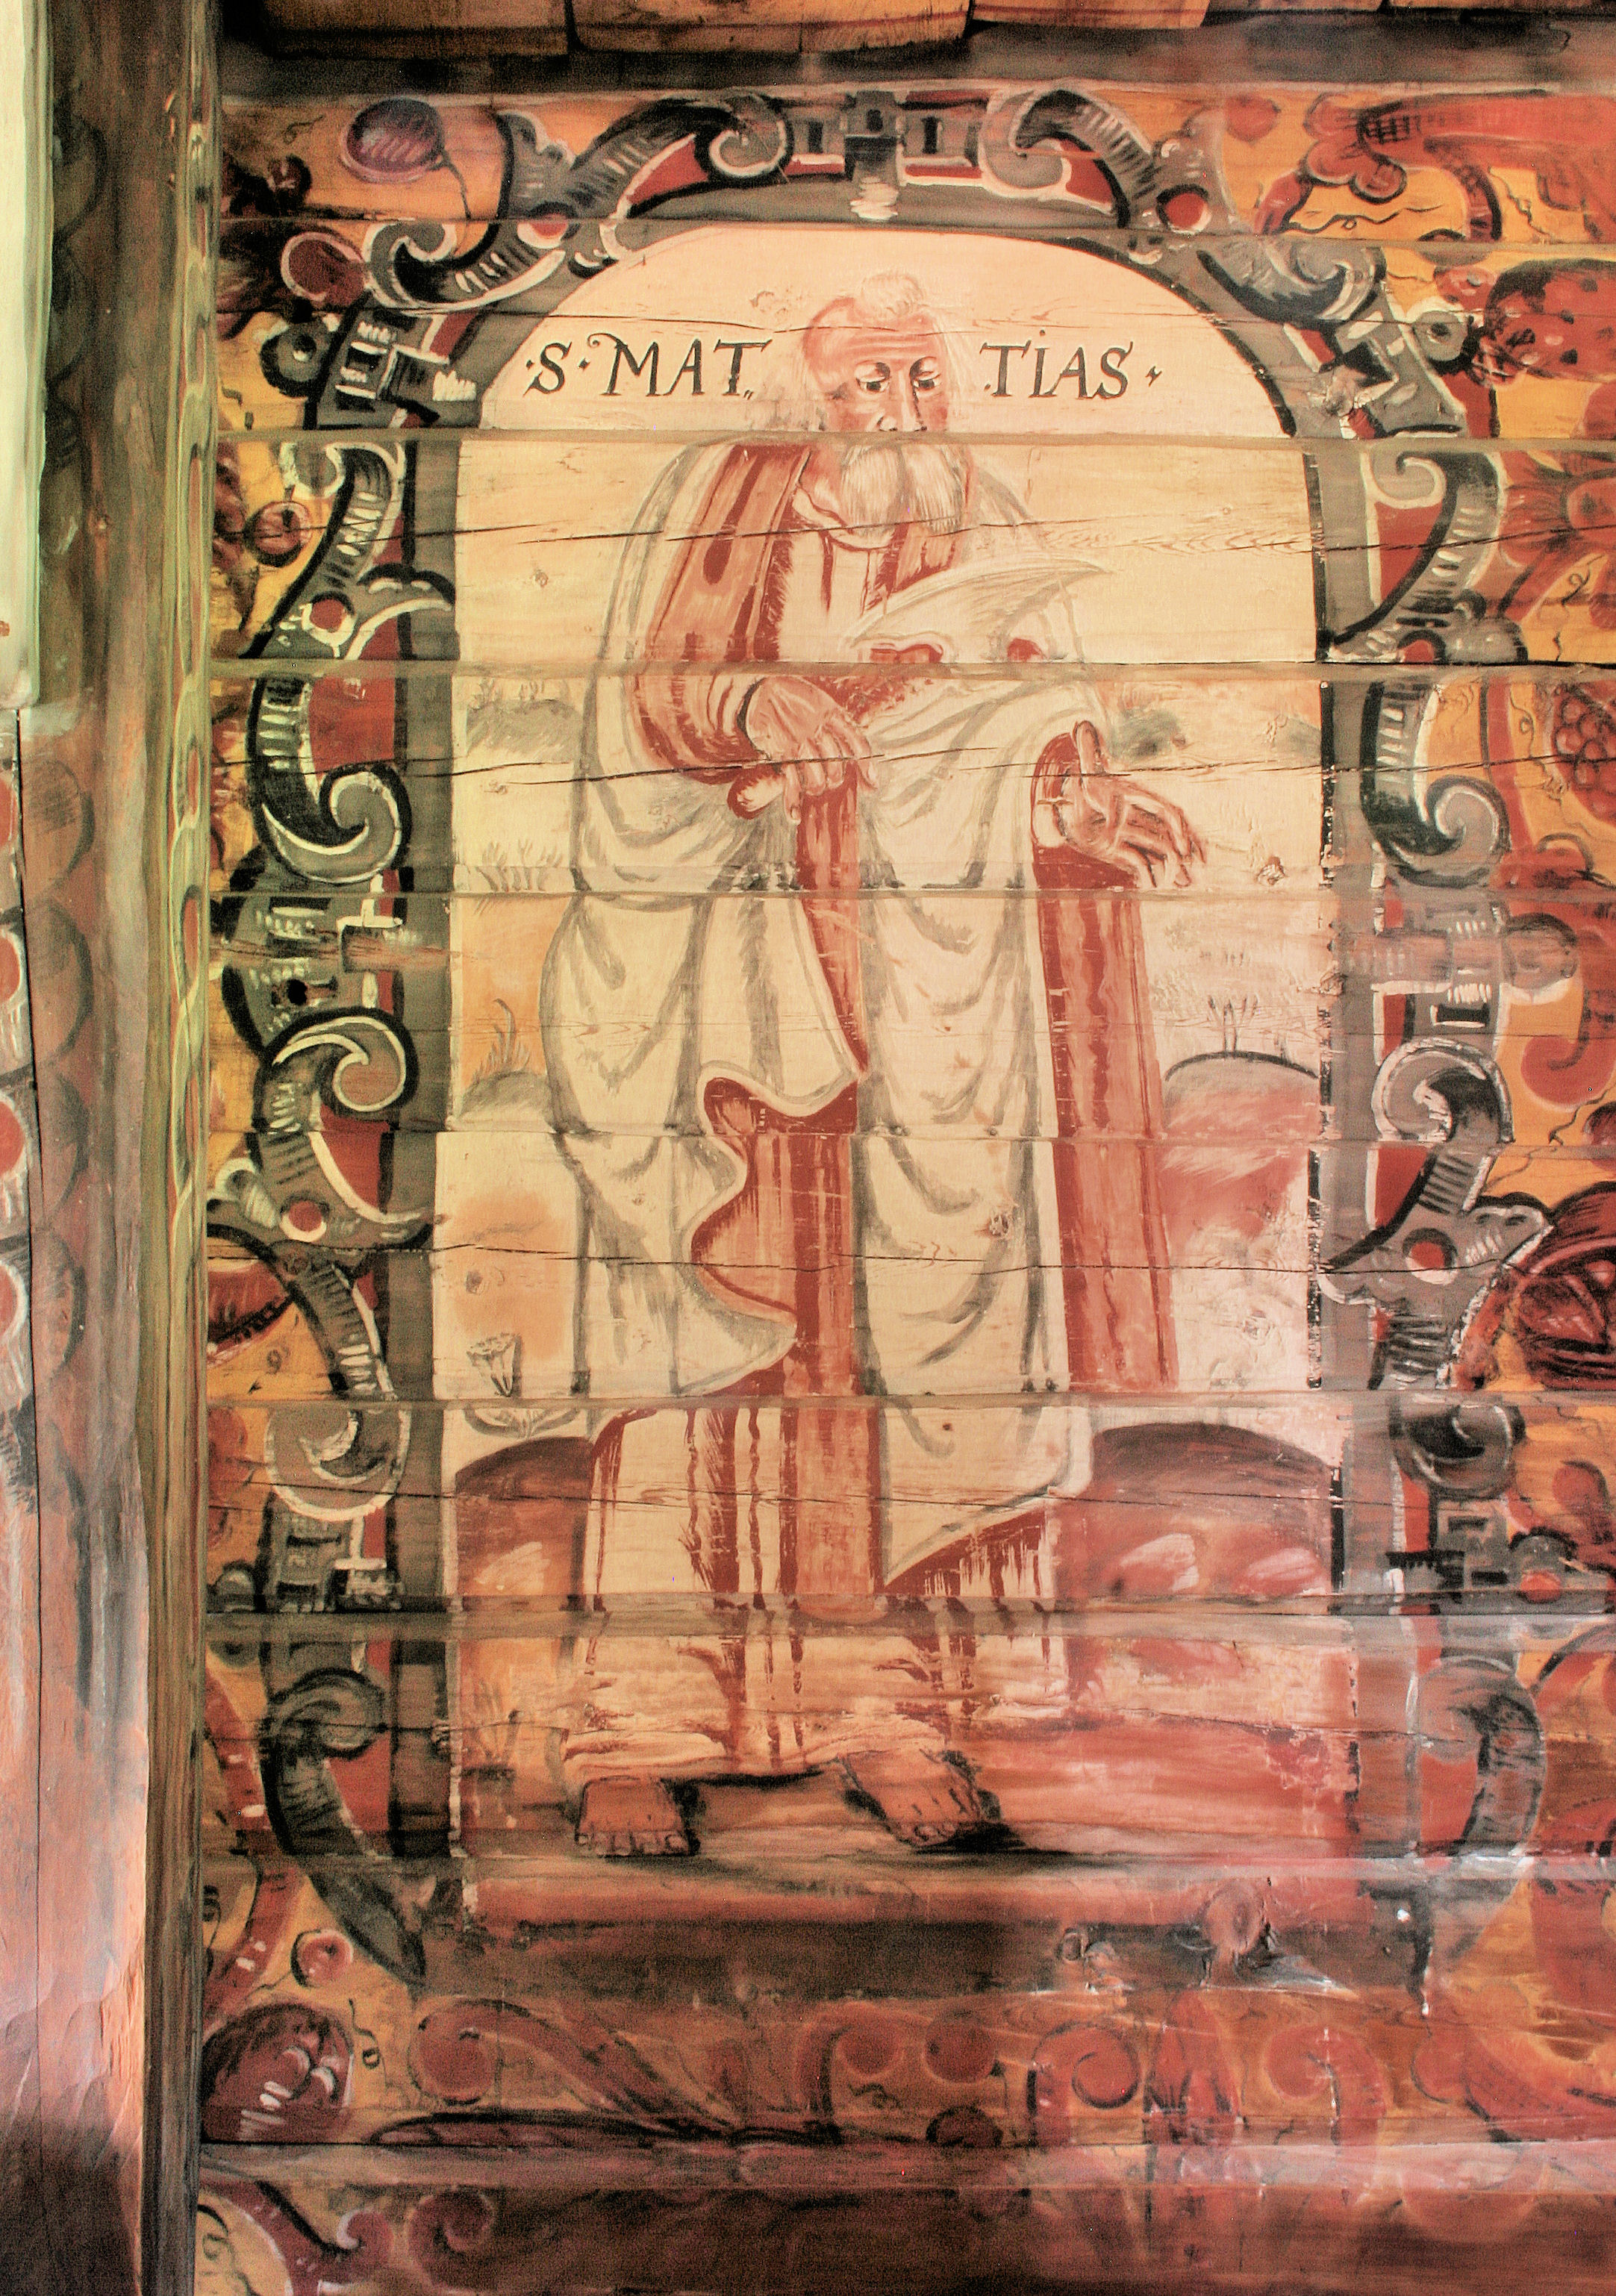 ·S· MAT„ TIAS·